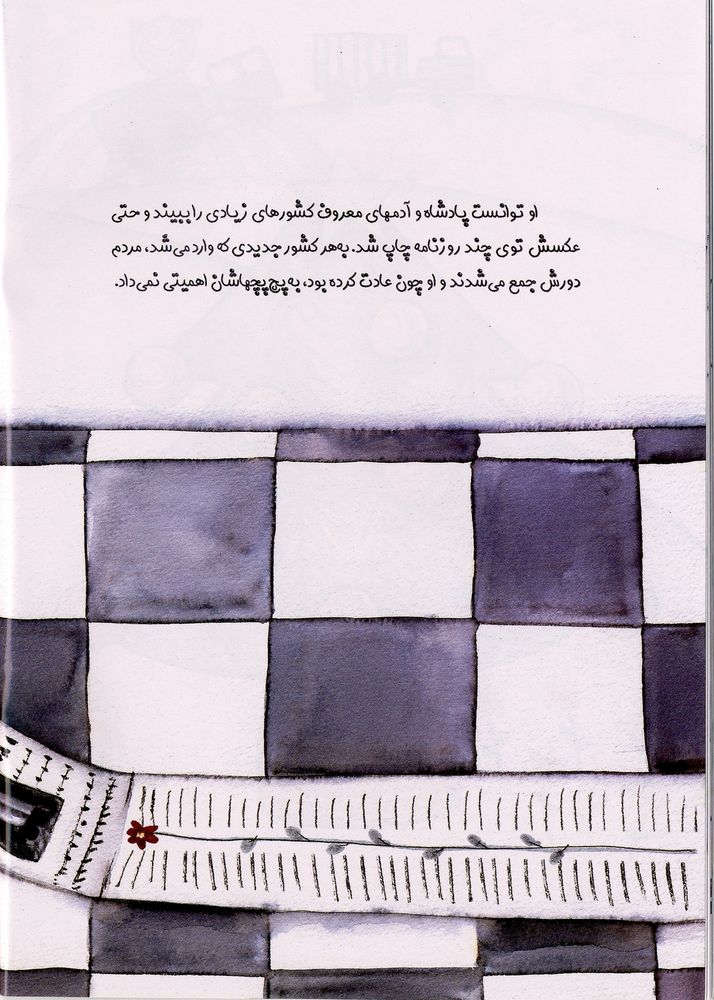 او توانست پادشاه و آدمهای معروف کشورهای زیادی را ببیند و حتی
عکسش توی چند روزنامه چاپ شد. به‌هر کشور جدیدی که وارد می‌شد، مردم
دورش جمع می‌شدند و او چون عادت کرده بود، به‌پچ‌پچهاشان اهمیتی نمی‌داد.